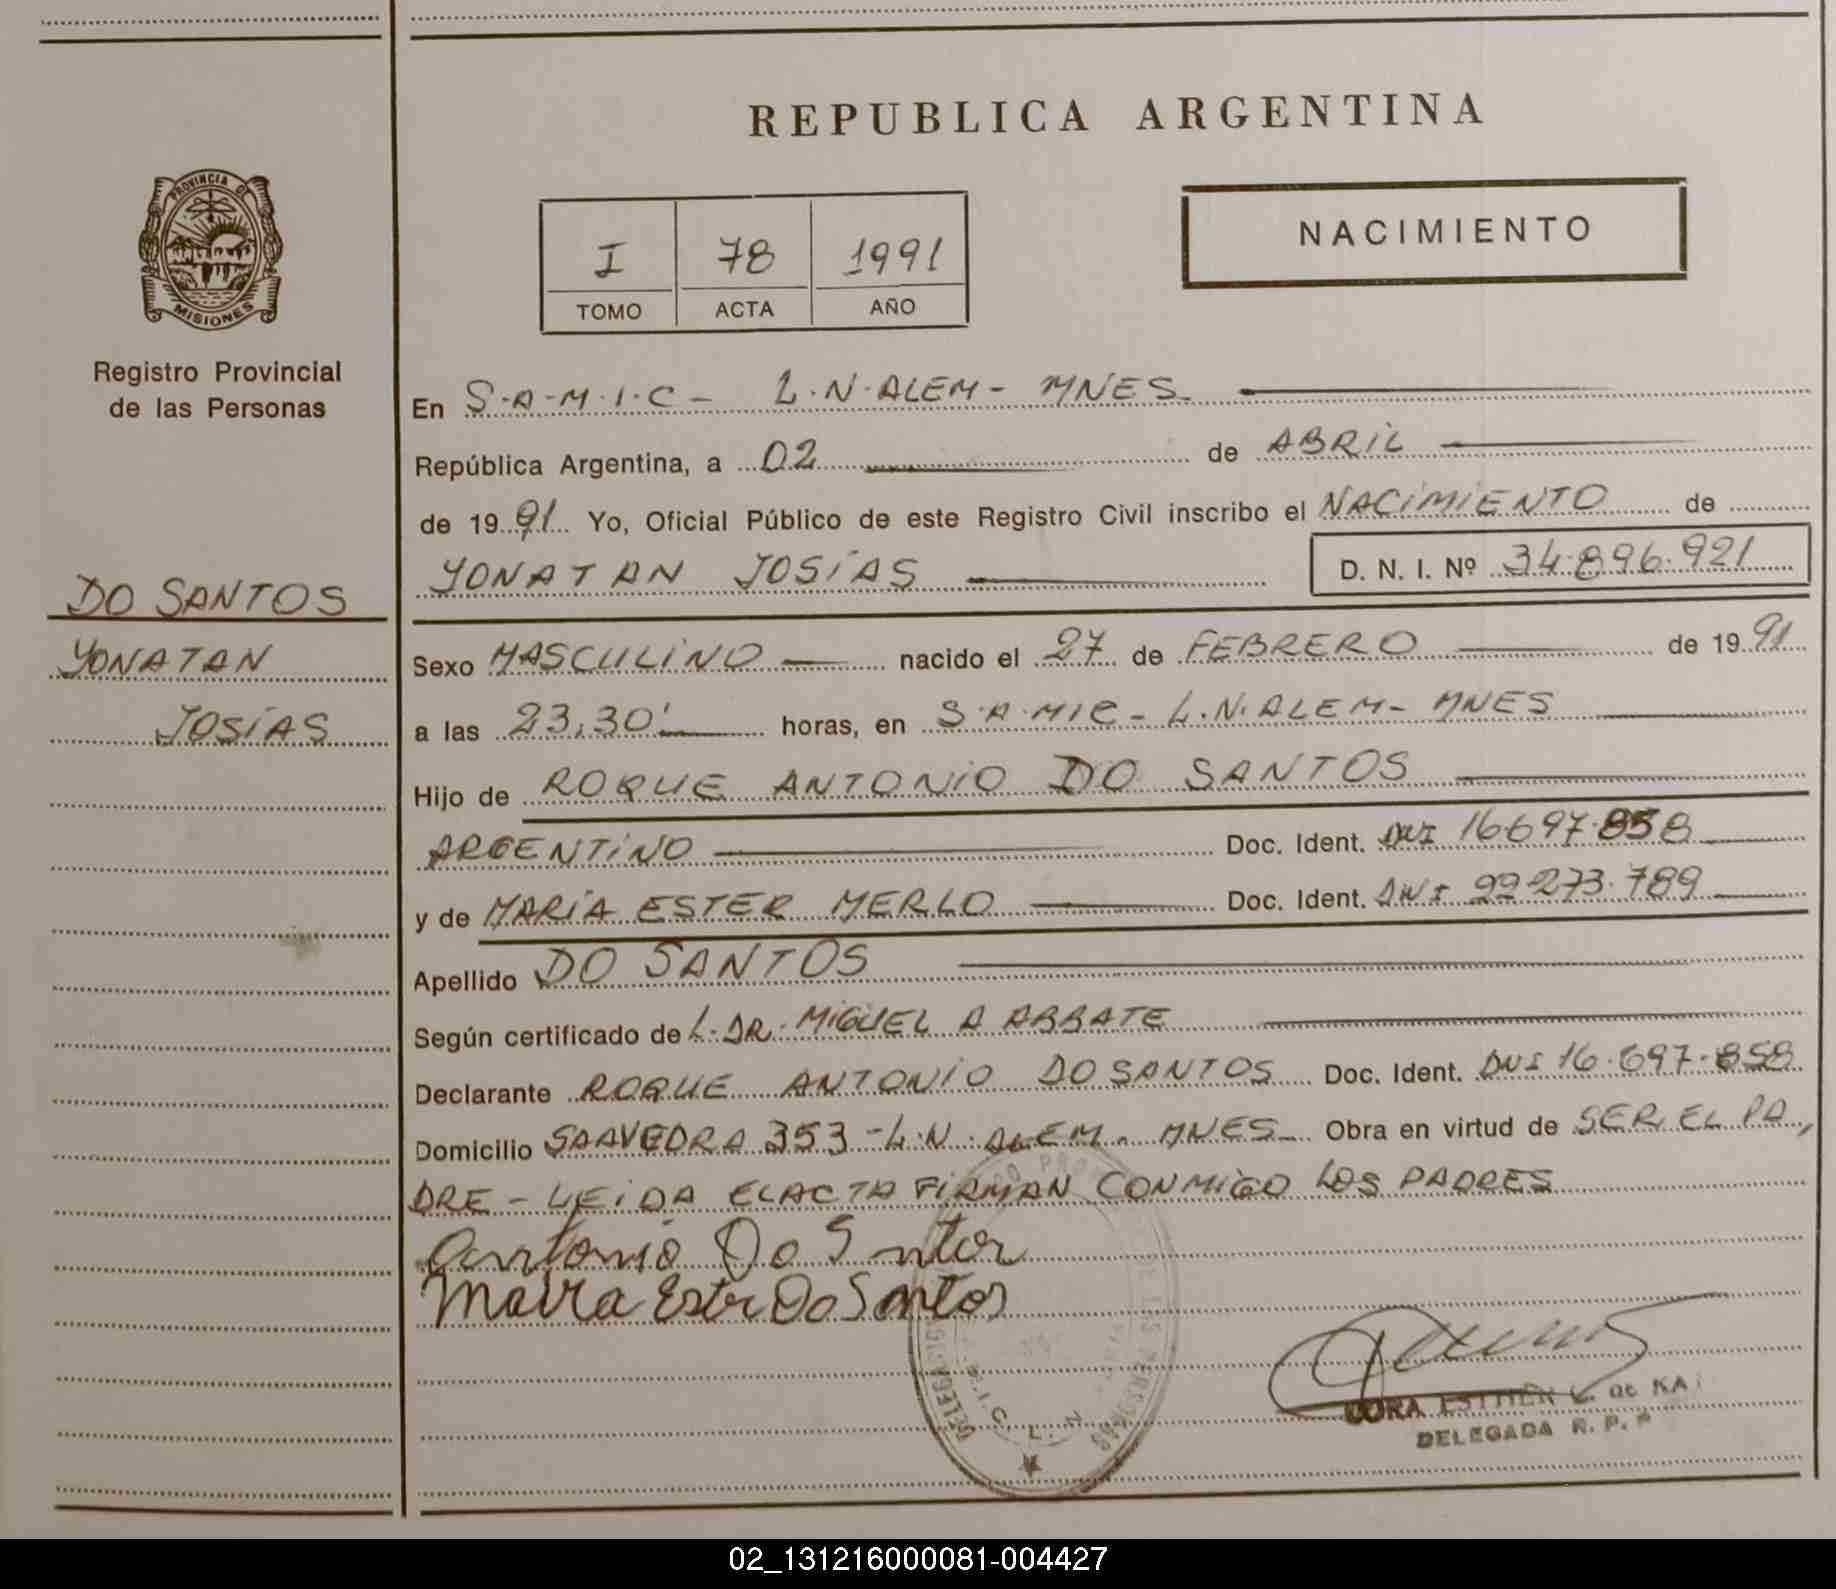 REPUBLICA ARGENTINA
PROVINCIA DE
MISIONES
Registro Provincial
de las Personas
DO SANTOS
YONATAN
JOSÍAS
I 78 1991
TOMO ACTA AÑO
NACIMIENTO
En S.A.M.I.C - L.N.ALEM - MNES
República Argentina, a 02 de ABRIL
de 1991 Yo, Oficial Público de este Registro Civil inscribo el NACIMIENTO de
YONATAN JOSÍAS D. N. I. Nº 34.896.921
Sexo MASCULINO nacido el 27 de FEBRERO de 1991
a las 23,30' horas, en S.A.MIC - L.N.ALEM - MNES
Hijo de ROQUE ANTONIO DO SANTOS
ARGENTINO Doc. Ident. DNI 16697.858
y de MARÍA ESTER MERLO Doc. Ident. DNI 22.273.789
Apellido DO SANTOS
Según certificado de L. DR. MIGUEL A ABBATE
Declarante ROQUE ANTONIO DO SANTOS Doc. Ident. DNI 16.697.858
Domicilio SAAVEDRA 353 - L.N. ALEM - MNES Obra en virtud de SER EL PA
DRE - LEIDA EL ACTA FIRMAN CONMIGO LOS PADRES
Antonio Do Santos
Maira Ester Do Santos
ESTHER
DELEGADA R. P.
02_131216000081-004427